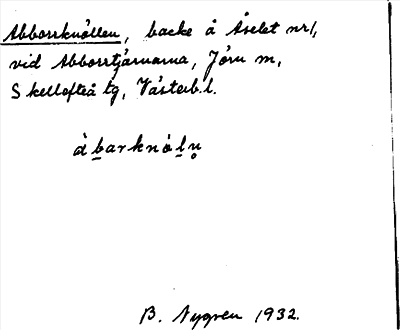 Abborrknöllen, backe å Åselet nr 1,
vid Abborrtjärnarna, Jörn m,
Skellefteå tg, Västerb. l.
àb̲arknó̀l̲n̥
B. Nygren 1932.